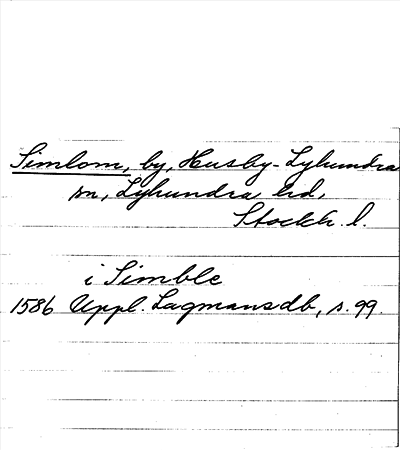 Simlom, by, Husby-Lyhundra
sn, Lyhundra hd,
Stockh. l.
i Simble
1586 Uppl. Lagmansdb, s. 99.